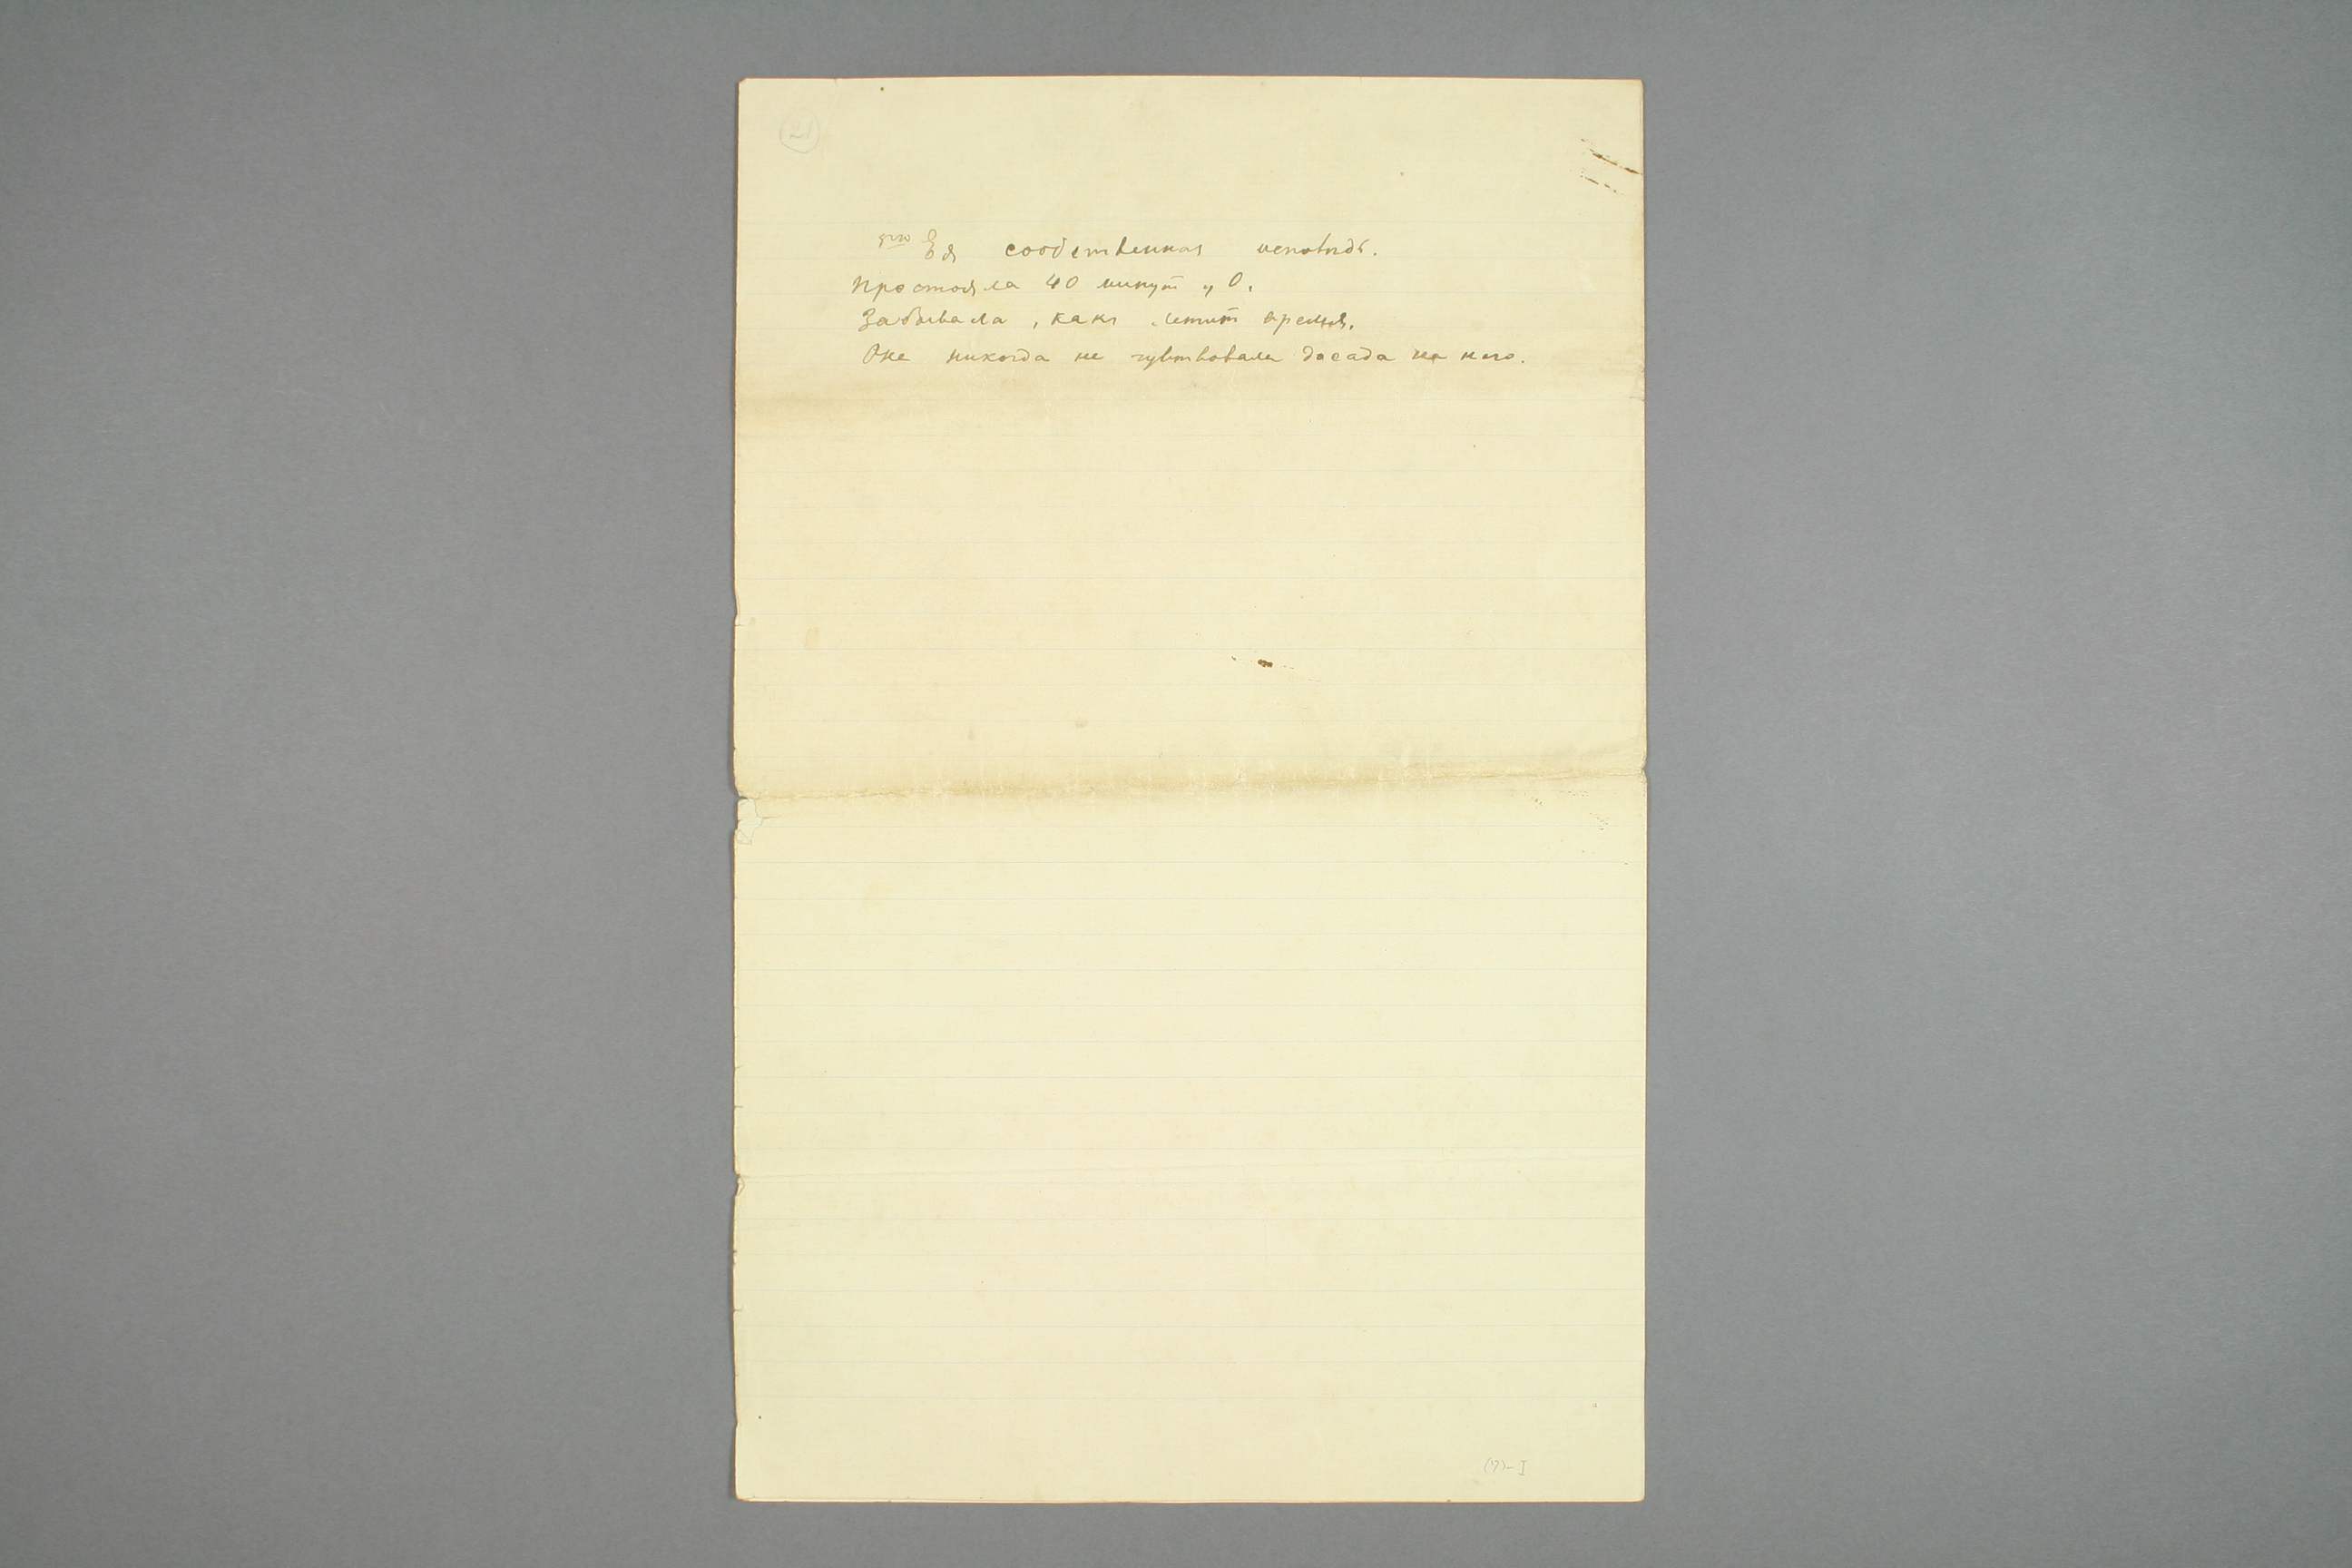 это Ея сообственная исповѣдь.
простояла 40 минут у О.
Забывала, какъ летит время.
Она никогда не чувствовала досада на него.
(7)-I